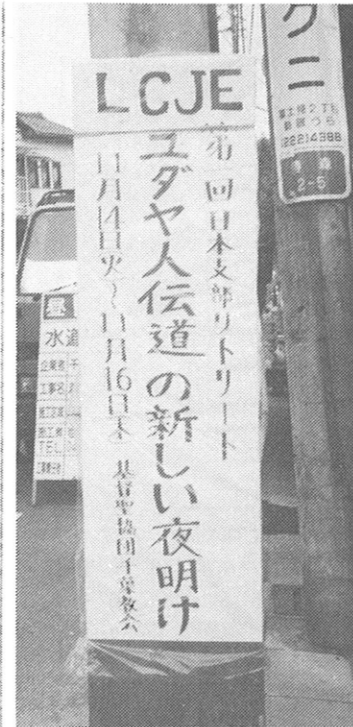 LCJE
第一回日本支部リトリート
ユダヤ人伝道の新しい夜明け
11月14日火〜11月16日木 基督聖協団千葉教会
クニ
2-5
昼
水道